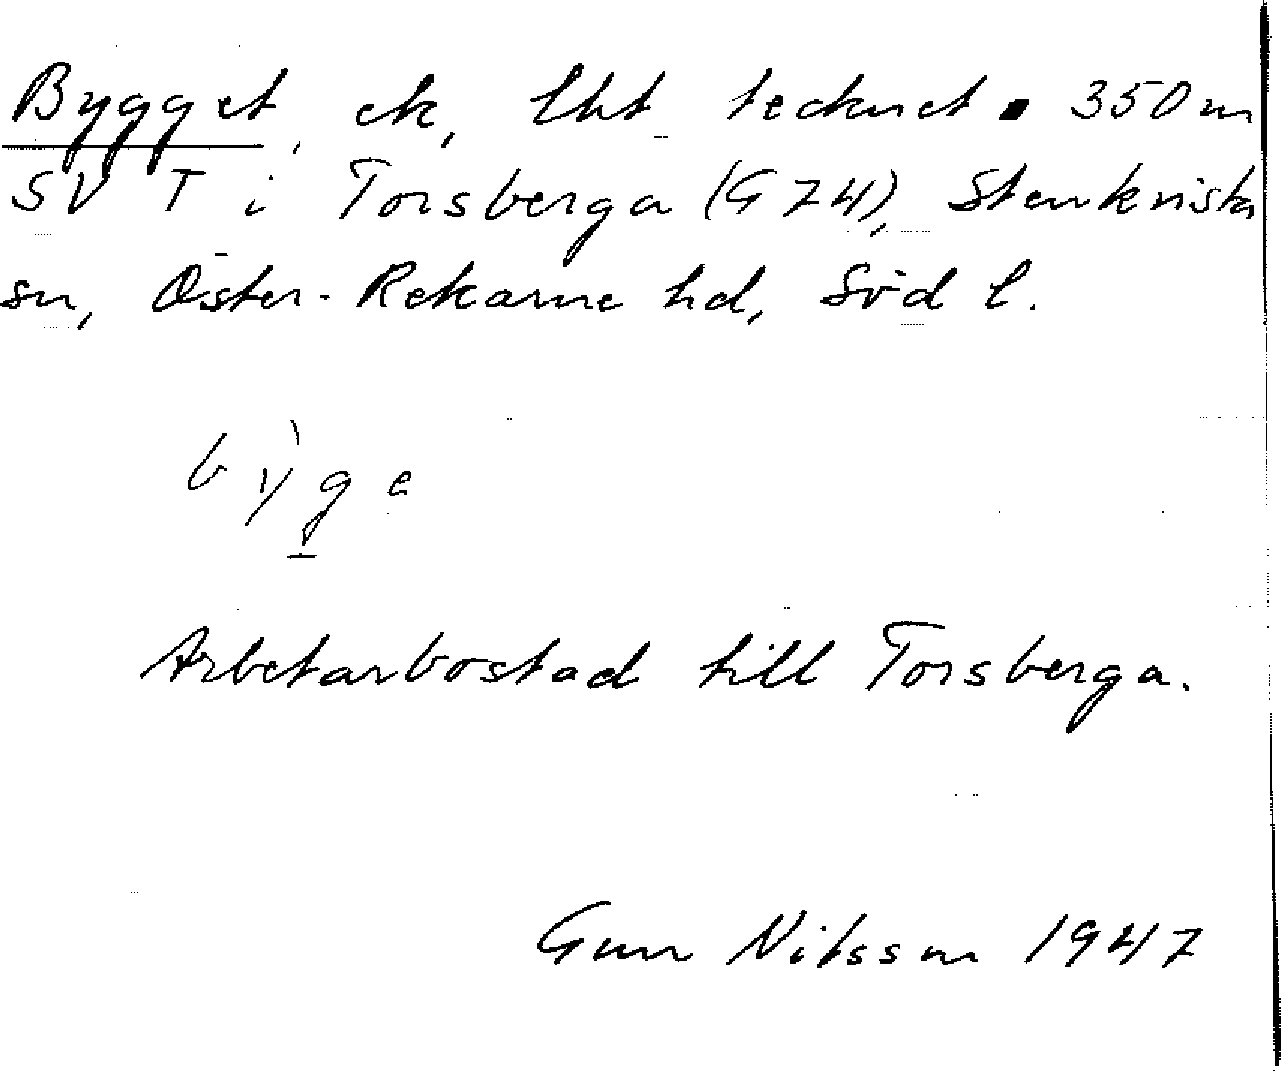 Bygget, ek, lht tecknet ▪ 350 m
SV T i Torsberga (G 74), Stenkvista
sn, Öster-Rekarne hd, Söd l.
bỳge
Arbetarbostad till Torsberga.
Gun Nilsson 1947